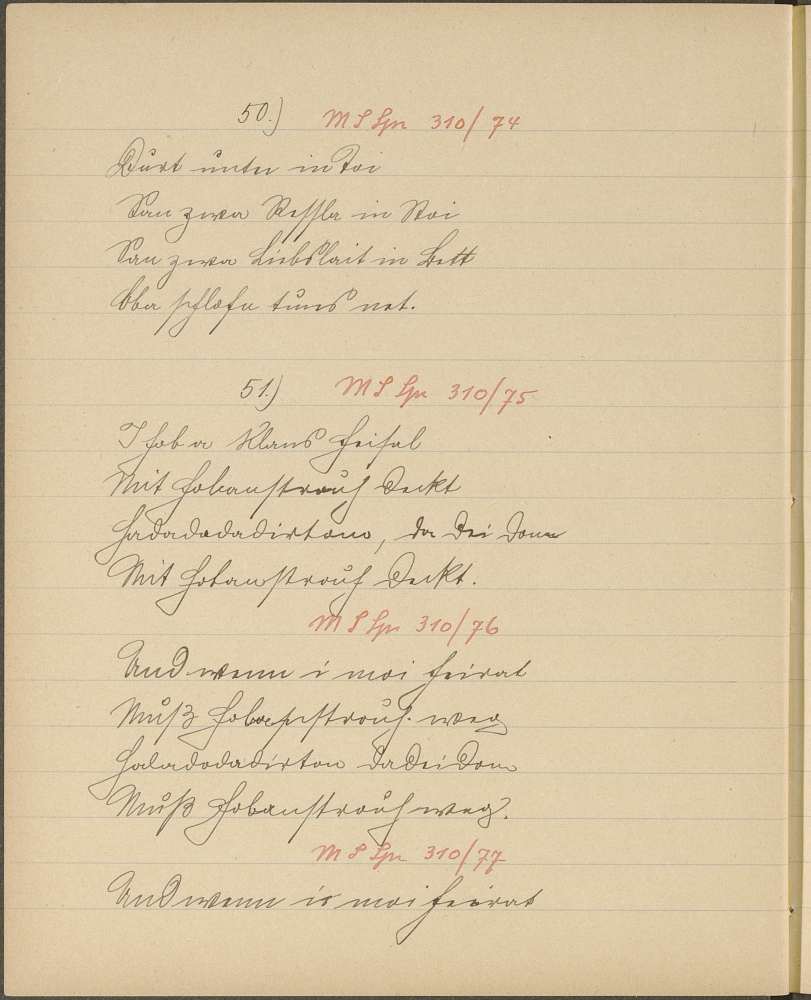 50.) M S Spr 310/74
Durt unter in Toi
San zwa Ressla in Stoi
San zwa Liebslait in Bett
Oba schlofn tuns net.
51.) M S Spr 310/75
I hob a klans Heisal
Mit Hobanstrouh deckt
Hadadodadirtom, da dei dom
Mit Hobanstrouh deckt.
M S Spr 310/76
Und wenn i moi heirat
Muß Hobanstrouh weg
Haladodadirton da dei dom
Muß Hobanstrouh weg.
M S Spr 310/77
Und wenn i moi heirat